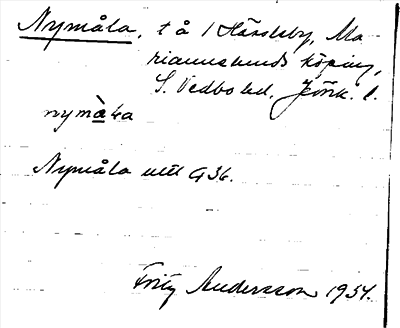 Nymåla, t å 1 Hässleby, Ma-
riannelunds köping,
S. Vedbo hd, Jönk. l.
nymàla
Nymåla utt G36.
Fritz Andersson 1954.